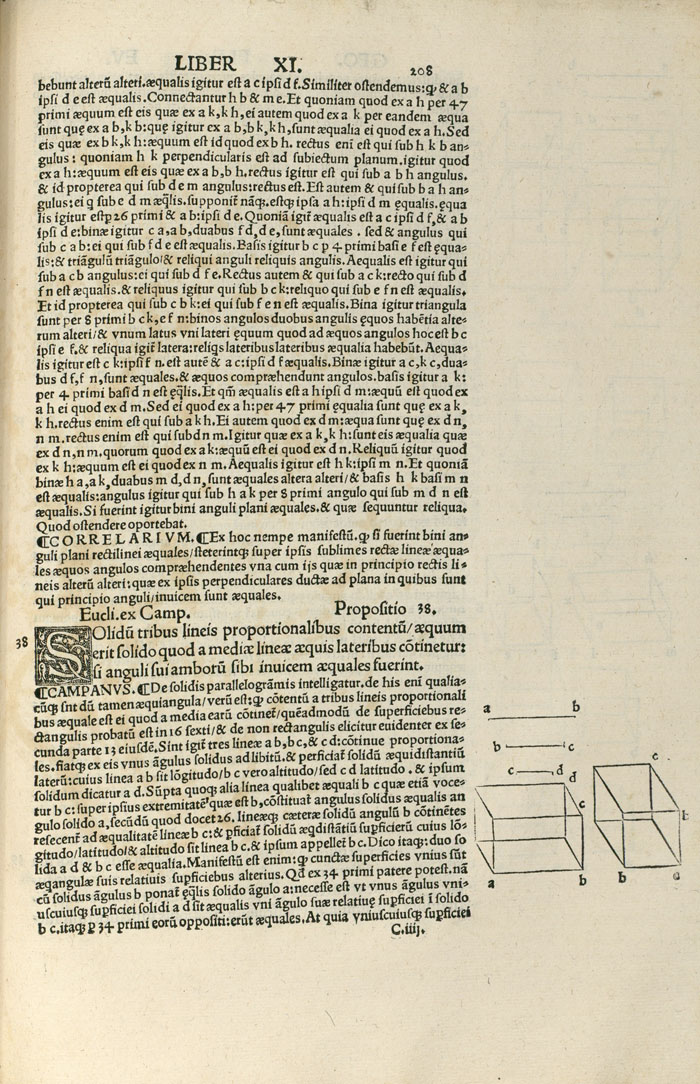 LIBER XI. 208
bebunt alterũ alteri. æqualis igitur est a c ipsi d f. Similiter ostendemus: ꝙ & a b
ipsi d e est æqualis. Connectantur h b & m e. Et quoniam quod ex a h per 47
primi æquum est eis quæ ex a k, k h, ei autem quod ex a k per eandem æqua
sunt quę ex a b, k b: quę igitur ex a b, b k, k h, sunt æqualia ei quod ex a h. Sed
eis quæ ex b k, k h: æquum est id quod ex b h. rectus eni est qui sub h k b an⸗
gulus: quoniam h k perpendicularis est ad subiectum planum. igitur quod
ex a h: æquum est eis quæ ex a b, b h. rectus igitur est qui sub a b h angulus.
& id propterea qui sub d e m angulus: rectus est. Est autem & qui sub b a h an⸗
gulus: ei q sub e d m æq̃lis. supponit̃ nãq. estq ipsa a h: ipsi d m ęqualis. ęqua
lis igitur est p 26 primi & a b: ipsi d e. Quoniã igit̃ æqualis est a c ipsi d f, & a b
ipsi d e: binæ igitur c a, a b, duabus f d, d e, sunt æquales. sed & angulus qui
sub c a b: ei qui sub f d e est æqualis. Basis igitur b c p 4 primi basi e f est ęqua⸗
lis: & triãgulũ triãgulo/ & reliqui anguli reliquis angulis. Aequalis est igitur qui
sub a c b angulus: ei qui sub d f e. Rectus autem & qui sub a c k: recto qui sub d
f n est æqualis. & reliquus igitur qui sub b c k: reliquo qui sub e f n est æqualis.
Et id propterea qui sub c b k: ei qui sub f e n est æqualis. Bina igitur triangula
sunt per 8 primi b c k, e f n: binos angulos duobus angulis ęquos habẽtia alte⸗
rum alteri/ & vnum latus vni lateri ęquum quod ad æquos angulos hoc est b c
ipsi e f. & reliqua igit̃ latera: reliqs lateribus lateribus æqualia habebũt. Aequa⸗
lis igitur est c k: ipsi f n. est autẽ & a c: ipsi d f æqualis. Binæ igitur a c, k c, dua⸗
bus d f, f n, sunt æquales. & æquos compræhendunt angulos. basis igitur a k:
per 4 primi basi d n est ęq̃lis. Et qm̃ æqualis est a h ipsi d m: æquũ est quod ex
a h ei quod ex d m. Sed ei quod ex a h: per 47 primi ęqualia sunt quę ex a k,
k h. rectus enim est qui sub a k h. Ei autem quod ex d m: æqua sunt quę ex d n,
n m. rectus enim est qui sub d n m. Igitur quæ ex a k, k h: sunt eis æqualia quæ
ex d n, n m. quorum quod ex a k: æquũ est ei quod ex d n. Reliquũ igitur quod
ex k h: æquum est ei quod ex n m. Aequalis igitur est h k: ipsi m n. Et quoniã
binæ h a, a k, duabus m d, d n, sunt æquales altera alteri/ & basis h k basi m n
est æqualis: angulus igitur qui sub h a k per 8 primi angulo qui sub m d n est
æqualis. Si fuerint igitur bini anguli plani æquales. & quæ sequuntur reliqua.
Quod ostendere oportebat.
¶CORRELARIVM. ¶Ex hoc nempe manifestũ. ꝙ si fuerint bini an⸗
guli plani rectilinei æquales/ steterintq super ipsis sublimes rectæ lineæ æqua⸗
les æquos angulos compræhendentes vna cum ijs quæ in principio rectis li⸗
neis alterũ alteri: quæ ex ipsis perpendiculares ductæ ad plana in quibus sunt
qui principio anguli/ inuicem sunt æquales.
Eucli. ex Camp. Propositio 38.
38 SOlidũ tribus lineis proportionalibus contentũ/ æquum
erit solido quod a mediæ lineæ æquis lateribus cõtinetur:
si anguli sui amborũ sibi inuicem æquales fuerint.
¶CAMPANVS. ¶De solidis parallelogrãmis intelligatur. de his eni qualia⸗
cũq snt dũ tamen æquiangula/ verũ est: ꝙ cõtentũ a tribus lineis proportionali
bus æquale est ei quod a media earũ cõtinet̃/ quẽadmodũ de superficiebus re⸗
ctangulis probatũ est in 16 sexti/ & de non rectangulis elicitur euidenter ex se⸗
cunda parte 13 eiusdẽ. Sint igit̃ tres lineæ a b, b c, & c d: cõtinue proportiona⸗
les. fiatq ex eis vnus ãgulus solidus ad libitũ. & perficiat̃ solidũ æquidistantiũ
laterũ: cuius linea a b sit lõgitudo/ b c vero altitudo/ sed c d latitudo. & ipsum
solidum dicatur a d. Sũpta quoq alia linea qualibet æquali b c quæ etiã voce⸗
tur b c: super ipsius extremitatẽ quæ est b, cõstituat̃ angulus solidus æqualis an
gulo solido a, secũdũ quod docet 26. lineæq cæteræ solidũ angulũ b cõtinẽtes
resecent̃ ad æqualitatẽ lineæ b c: & pficiat̃ solidũ æqdistãtiũ supficierũ cuius lõ⸗
gitudo/ latitudo/ & altitudo sit linea b c. & ipsum appellet̃ b c. Dico itaq: duo so
lida a d & b c esse æqualia. Manifestũ est enim: ꝙ cunctæ superficies vnius sũt
æqangulæ suis relatiuis supficiebus alterius. Qd ex 34 primi patere potest. nã
cũ solidus ãgulus b ponat̃ ęq̃lis solido ãgulo a: necesse est vt vnus ãgulus vni⸗
uscuiusq supficiei solidi a d sit æqualis vni ãgulo suæ relatiuę supficiei ĩ solido
b c. itaq p 34 primi eorũ oppositi: erũt æquales. At quia vniuscuiusq supficiei
C.iiij.
a b
b c
c d
d
c
a b
c
b
b a